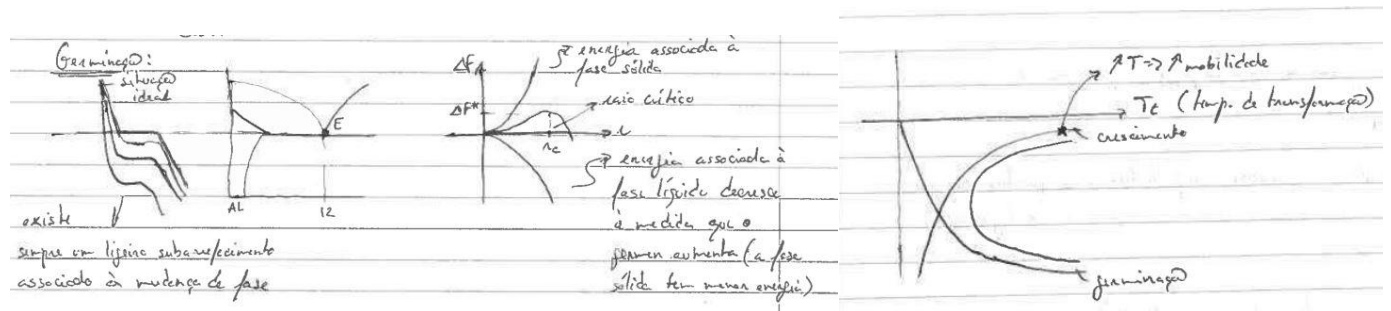 Germinação:
situação
ideal
existe
sempre um ligeiro subarrefecimento
associado à mudança de fase
E
AL
12
ΔF
ΔF*
energia associada à
fase sólida
raio crítico
r
rc
energia associada à
fase líquida decresce
à medida que o
germen aumenta (a fase
sólida tem menor energia)
↑T => ↑ mobilidade
Tt (temp. de transformação)
crescimento
germinação